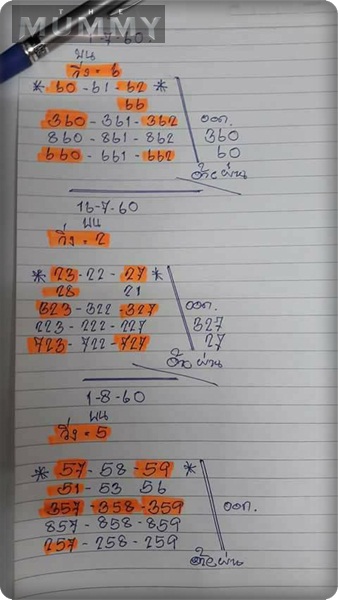 THE
MUMMY
-7-60
บน
วิ่ง = 6
* 60 - 61 - 62 *
66
360 - 361 - 362
860 - 861 - 862
660 - 661 - 662
ออก.
360
60
16-7-60
บน
วิ่ง = 2
* 23 - 22 - 27 *
28 21
323 - 322 - 327
223 - 222 - 227
723 - 722 - 727
ออก.
327
27
1-8-60
บน
วิ่ง = 5
* 57 - 58 - 59 *
51 - 53 56
357 - 358 - 359
857 - 858 - 859
257 - 258 - 259
ออก.